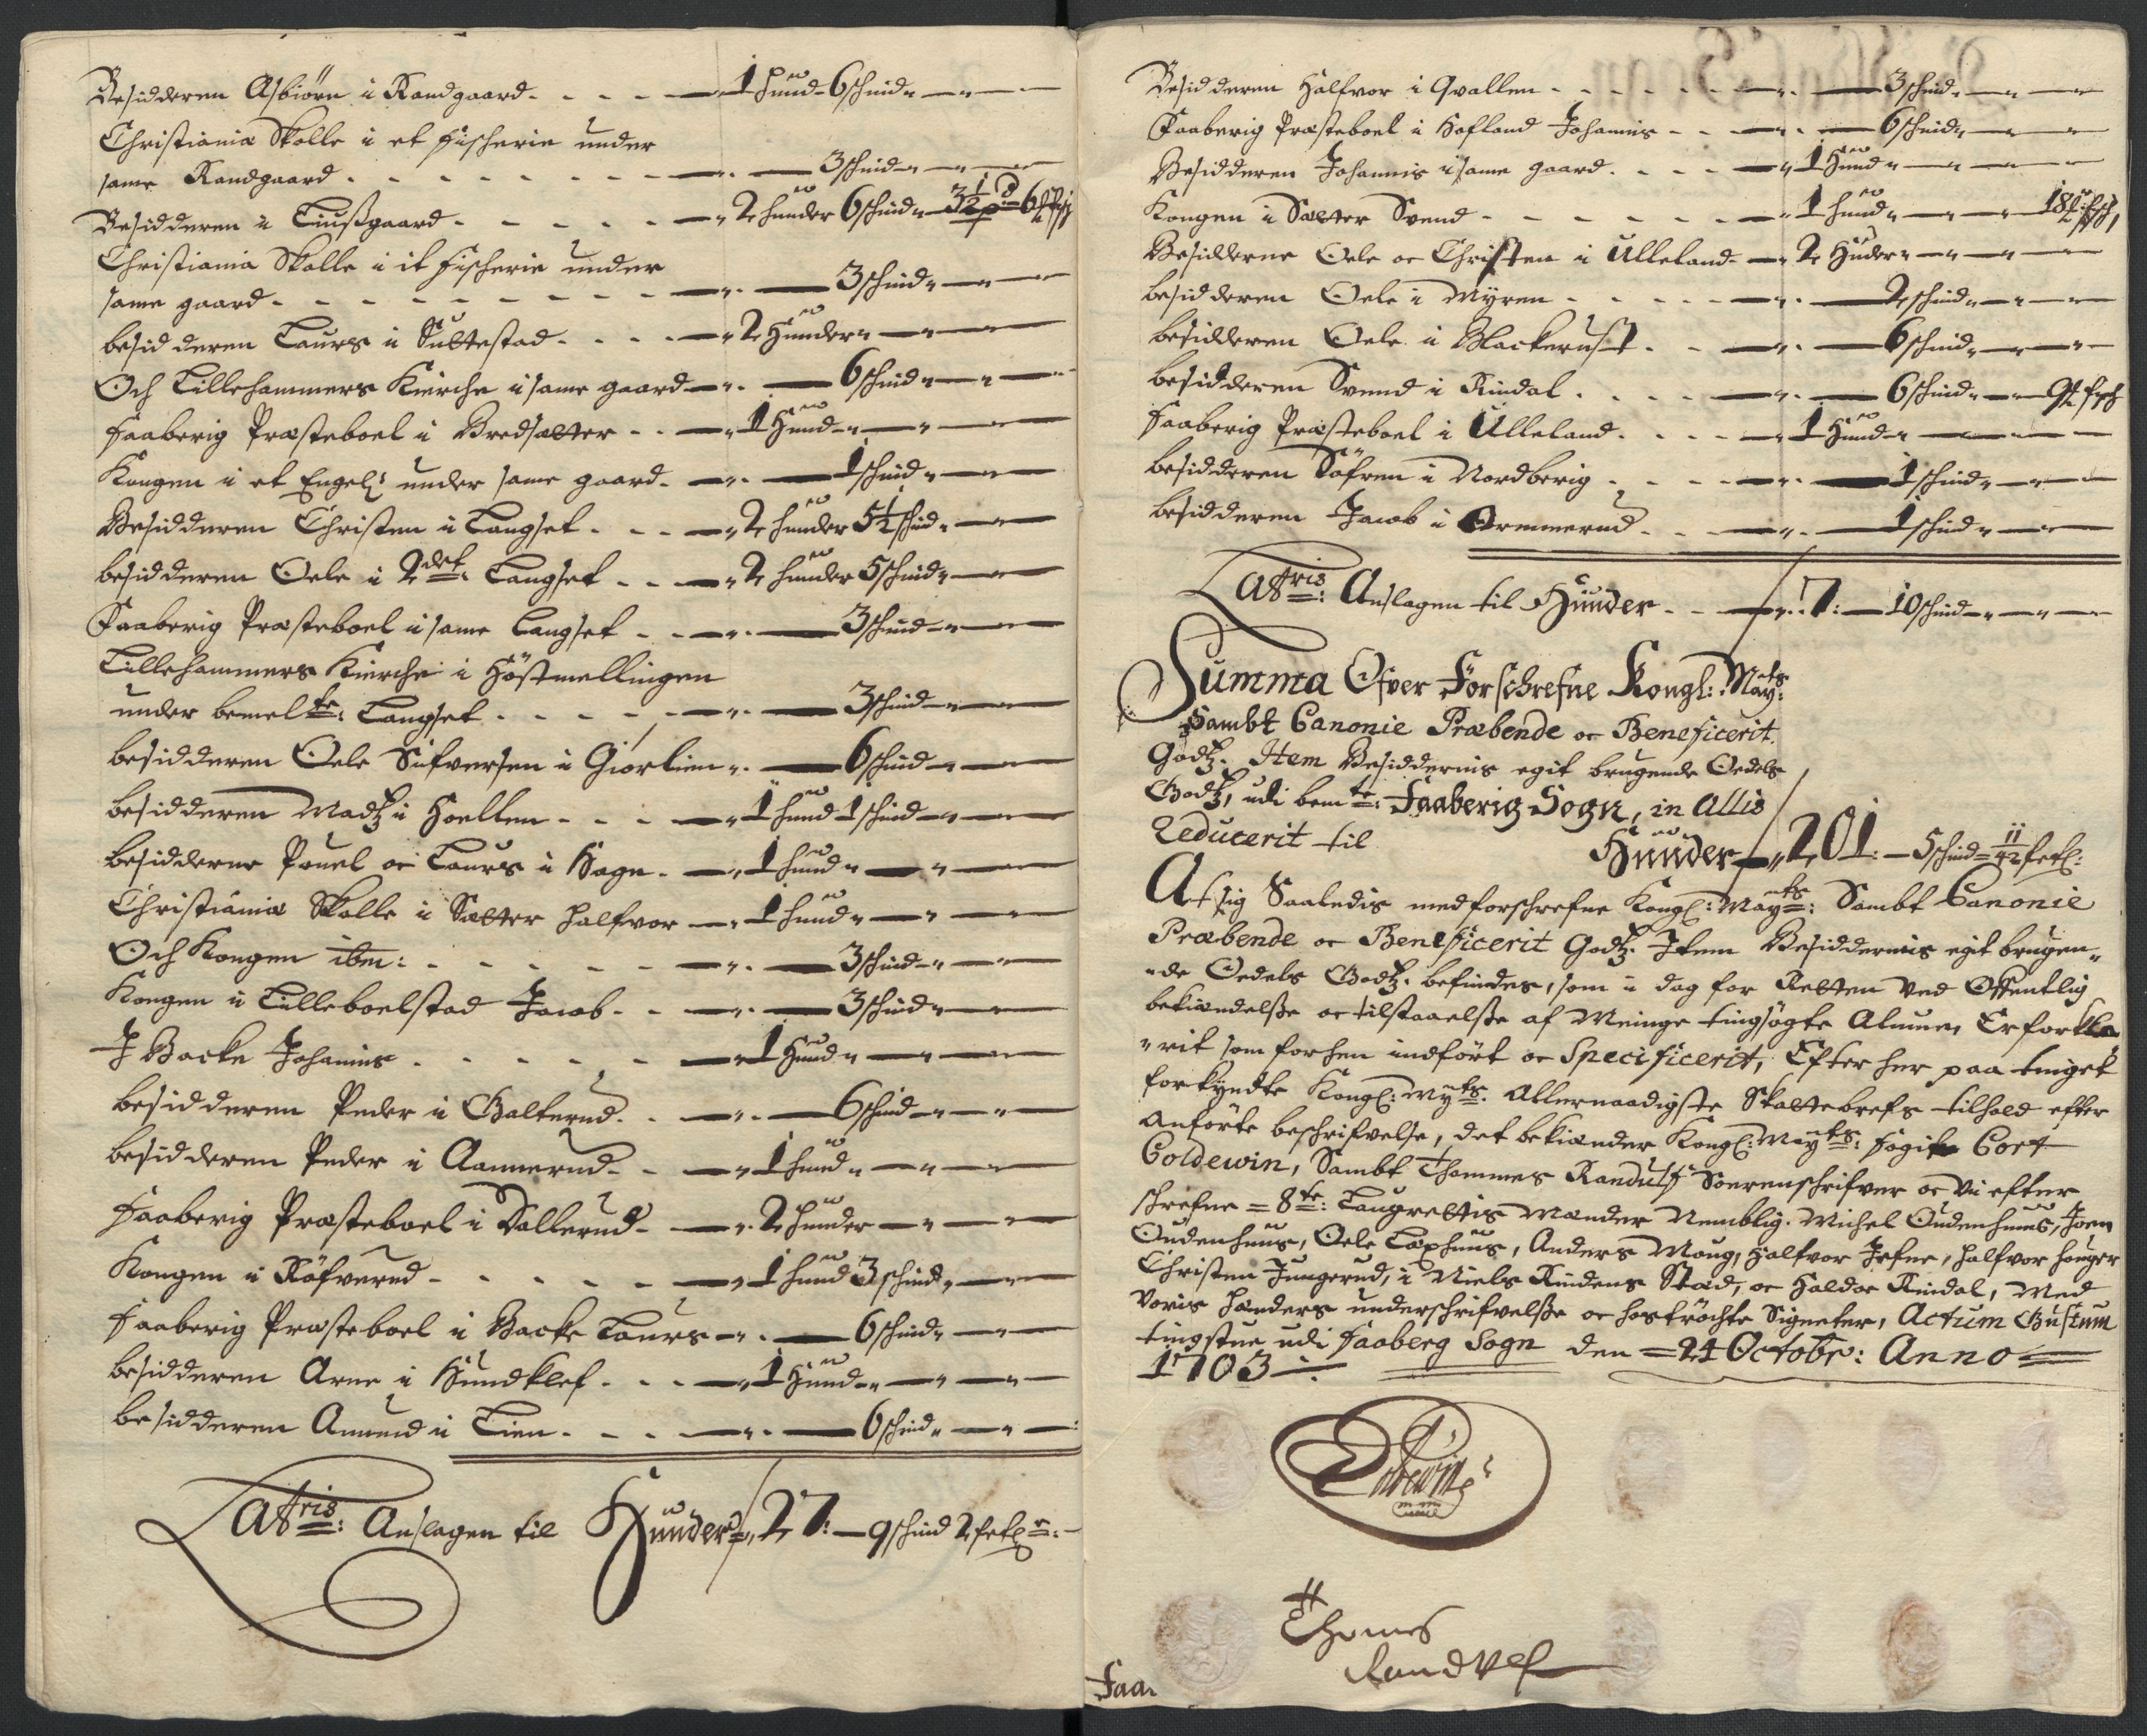 Besidderen Asbiörn i Randgaard - - - - 1 hund 6 schind
Christiania Skolle i et fischerie under
same Randgaard - - - - 3 schind
Besidderen i Liusgaard - - - - 2 hunder 6 schind 3½
Christiania Skolle i it fischerie under
same gaard - - - - 3 schind
besidderen Laurs i Sultestad - - - - 2 Hunder
Och Lillehammers Kirche i same gaard 6 schind
Faaberig Præsteboel i Bredsætter - - 1 Hund
Kongen i et Engesl: under same gaard - 1 schind
Besidderen Christen i Langset - - - 2 hunder 5½ schind
besidderen Oele i 2det: Langset - - 2 hunder 5 schind
Faaberig Præsteboel i same Langset - - 3 schind
Lillehammers Kirche i Höstmellingen
under bemelte: Langset - - - - 3 schind
besidderen Oele Sifversen i Giörlien 6 schind
besidderen Madtz i Hoellen - - - 1 hund 1 schind
besidderne Pouel oc Laurs i Hagn - 1 hund
Christiania Skolle i Sætter Halfvor 1 hund
Och Kongen ibm: - - - - 3 schind
Kongen i Lilleboelstad Jacob - - 3 schind
I Backe Johannis - - - - 1 Hund
besidderen Peder i Balterud - - 6 schind
besidderen Peder i Aannerud - - 1 hund
Faaberig Præsteboel i Sollerud - 2 hunder
Kongen i Röfverud - - - - 1 hund 3 schind
Faaberig Præsteboel i Backe Laurs 6 schind
besidderen Arne i Hundklef - - - 1 Hund
besidderen Amund i Lien - - - 6 schind
Latris: Anslagen til Hunder 27: 9 schind 2
Besidderen Halfvor i Qvallen - - - - 3 schind
Faaberig Præsteboel i Hofland Johannis - - 6 schind
Besidderen Johannis i same gaard - - - 1 Hund
Kongen i Sætter Svend - - - - 1 hund 18
Besidderne Oele oc Christen i Ulleland - 2 Huder
besidderen Oele i Myren - - - - 2 schind
besidderen Oele i Blackerust - - 6 schind
besidderen Svend i Rindal - - - - 6 schind 9
Faaberig Præsteboel i Ulleland - - - - 1 Hund
besidderen Söfren i Nordberig - - - - 1 schind
besidderen Jacob i Bremmerud - - - 1 schind
Latris: Anslagen til Hunder - - 7: 10 schind
Summa Ofver Forschrefne Kongl: Mayts:
Sambt Canonie Præbende oc Beneficerit
Godtz. Item Besiddernis egit brugende Oedels
Godtz, udi bemte: Faaberig Sogn, in Allis
Reducerit til Hunder 201: 5 schind 11/42
At sig Saaledis med forschrefne Kongl: Mayts: Sambt Canonie
Præbende oc Beneficerit Godtz. Item Besiddernis egit brugen-
-de Oedels Godtz. befindes, som i dag for Retten ved Offentlig
bekiendelsse oc tilstaaelsse af Meinge tingsögte Almue, Er forkla
-rit som forhen indfört oc Specificerit, Efter her paa tinget
forkyndte Kongl: Myts: Allernaadigste Skattebrefs tilhold efter
anförte beschrifvelse, det bekiender Kongl: Mayts: fogit Cort
Coldewin, Sambt Thommes Randulf Sorenschrifver oc vi efter
schrefne = 8te: Laugrettis Mænder Nemblig. Michel Oudenhuus, Joen
Oudenhuus, Oele Taxhuus, Anders Moug, Halfvor Jefne, Halfvor houger
Christen Jungerud, i Niels Rindens Stad, oc Haldor Rindal, Med
voris hænders underschrifvelsse oc hoströchte Signeter, Actum Bustum
tingstue udi Faaberg Sogn den = 24 Octobr: Anno
1703
Coldewin
Thomes
Randulf
Faa